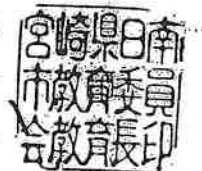 宮崎県日南
市教育委員
会教育長印